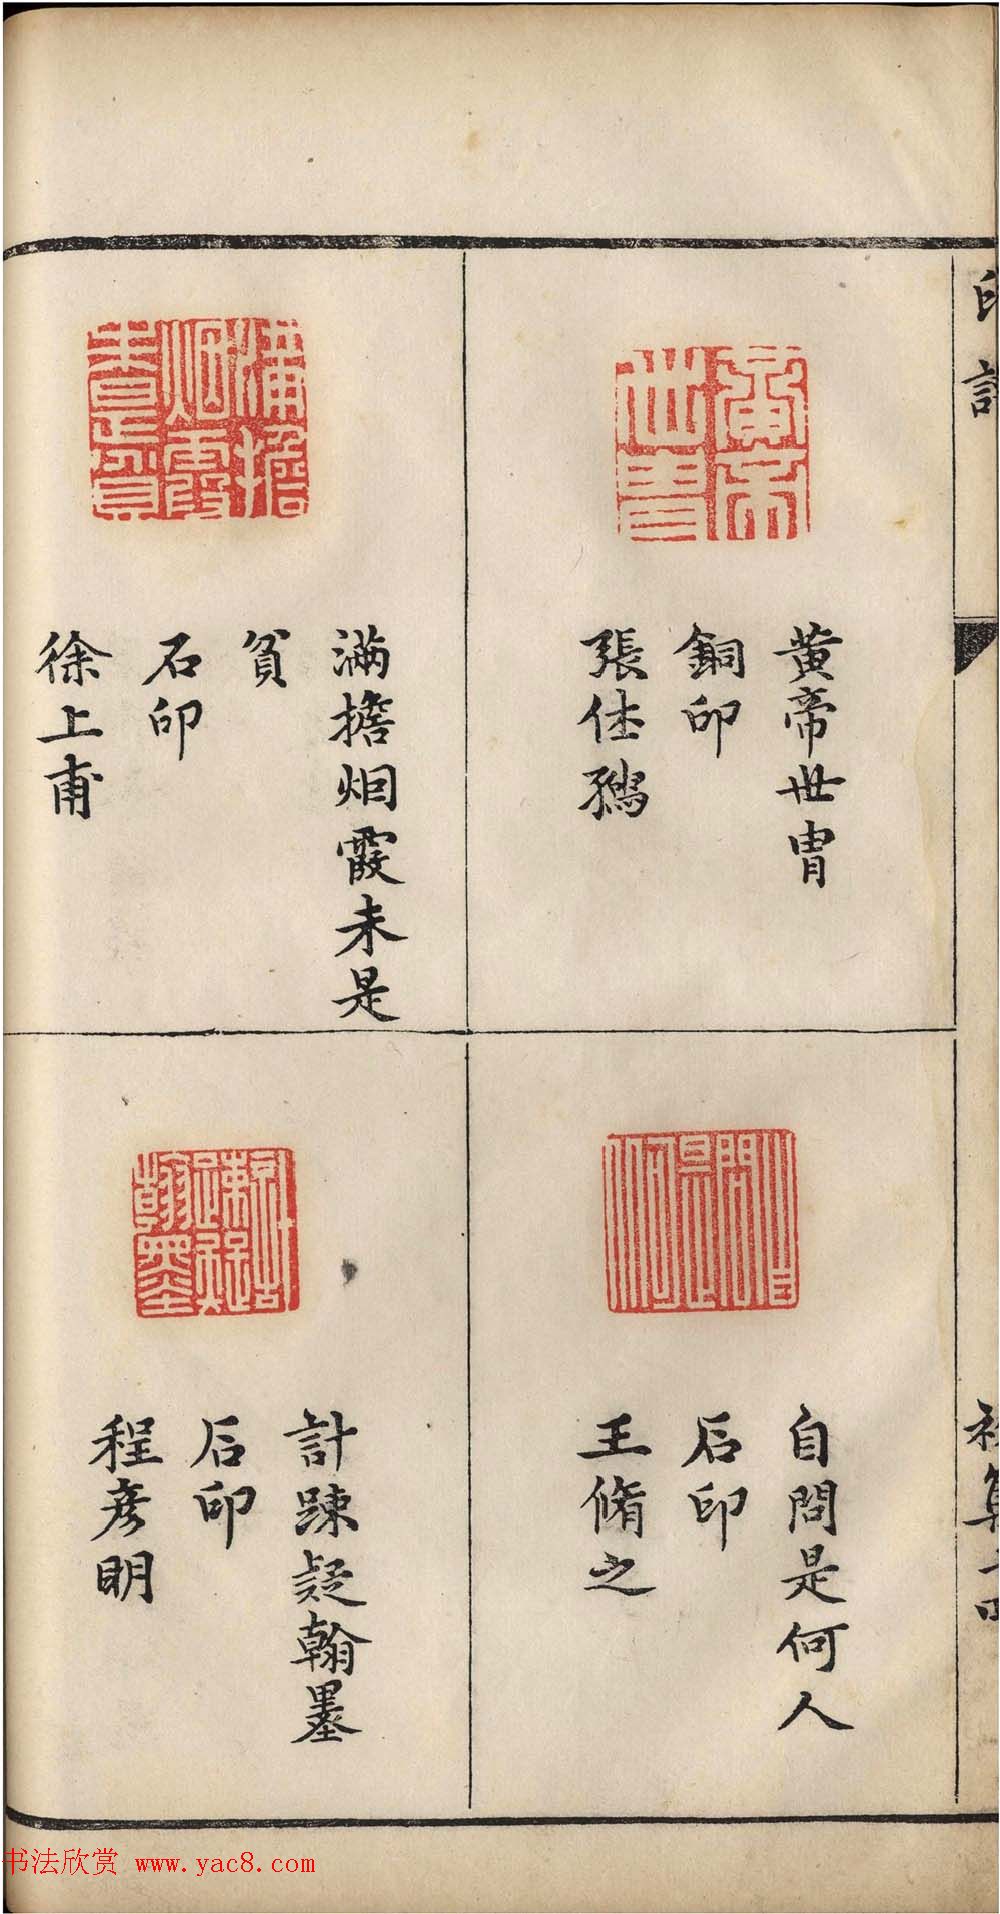 印譜
黄帝世冑
銅印
張仕
自問是何人
石印
王脩之
滿擔烟霞未是
貧
石印
徐上甫
計疎疑翰墨
石印
程彦明
书法欣赏 www.yac8.com